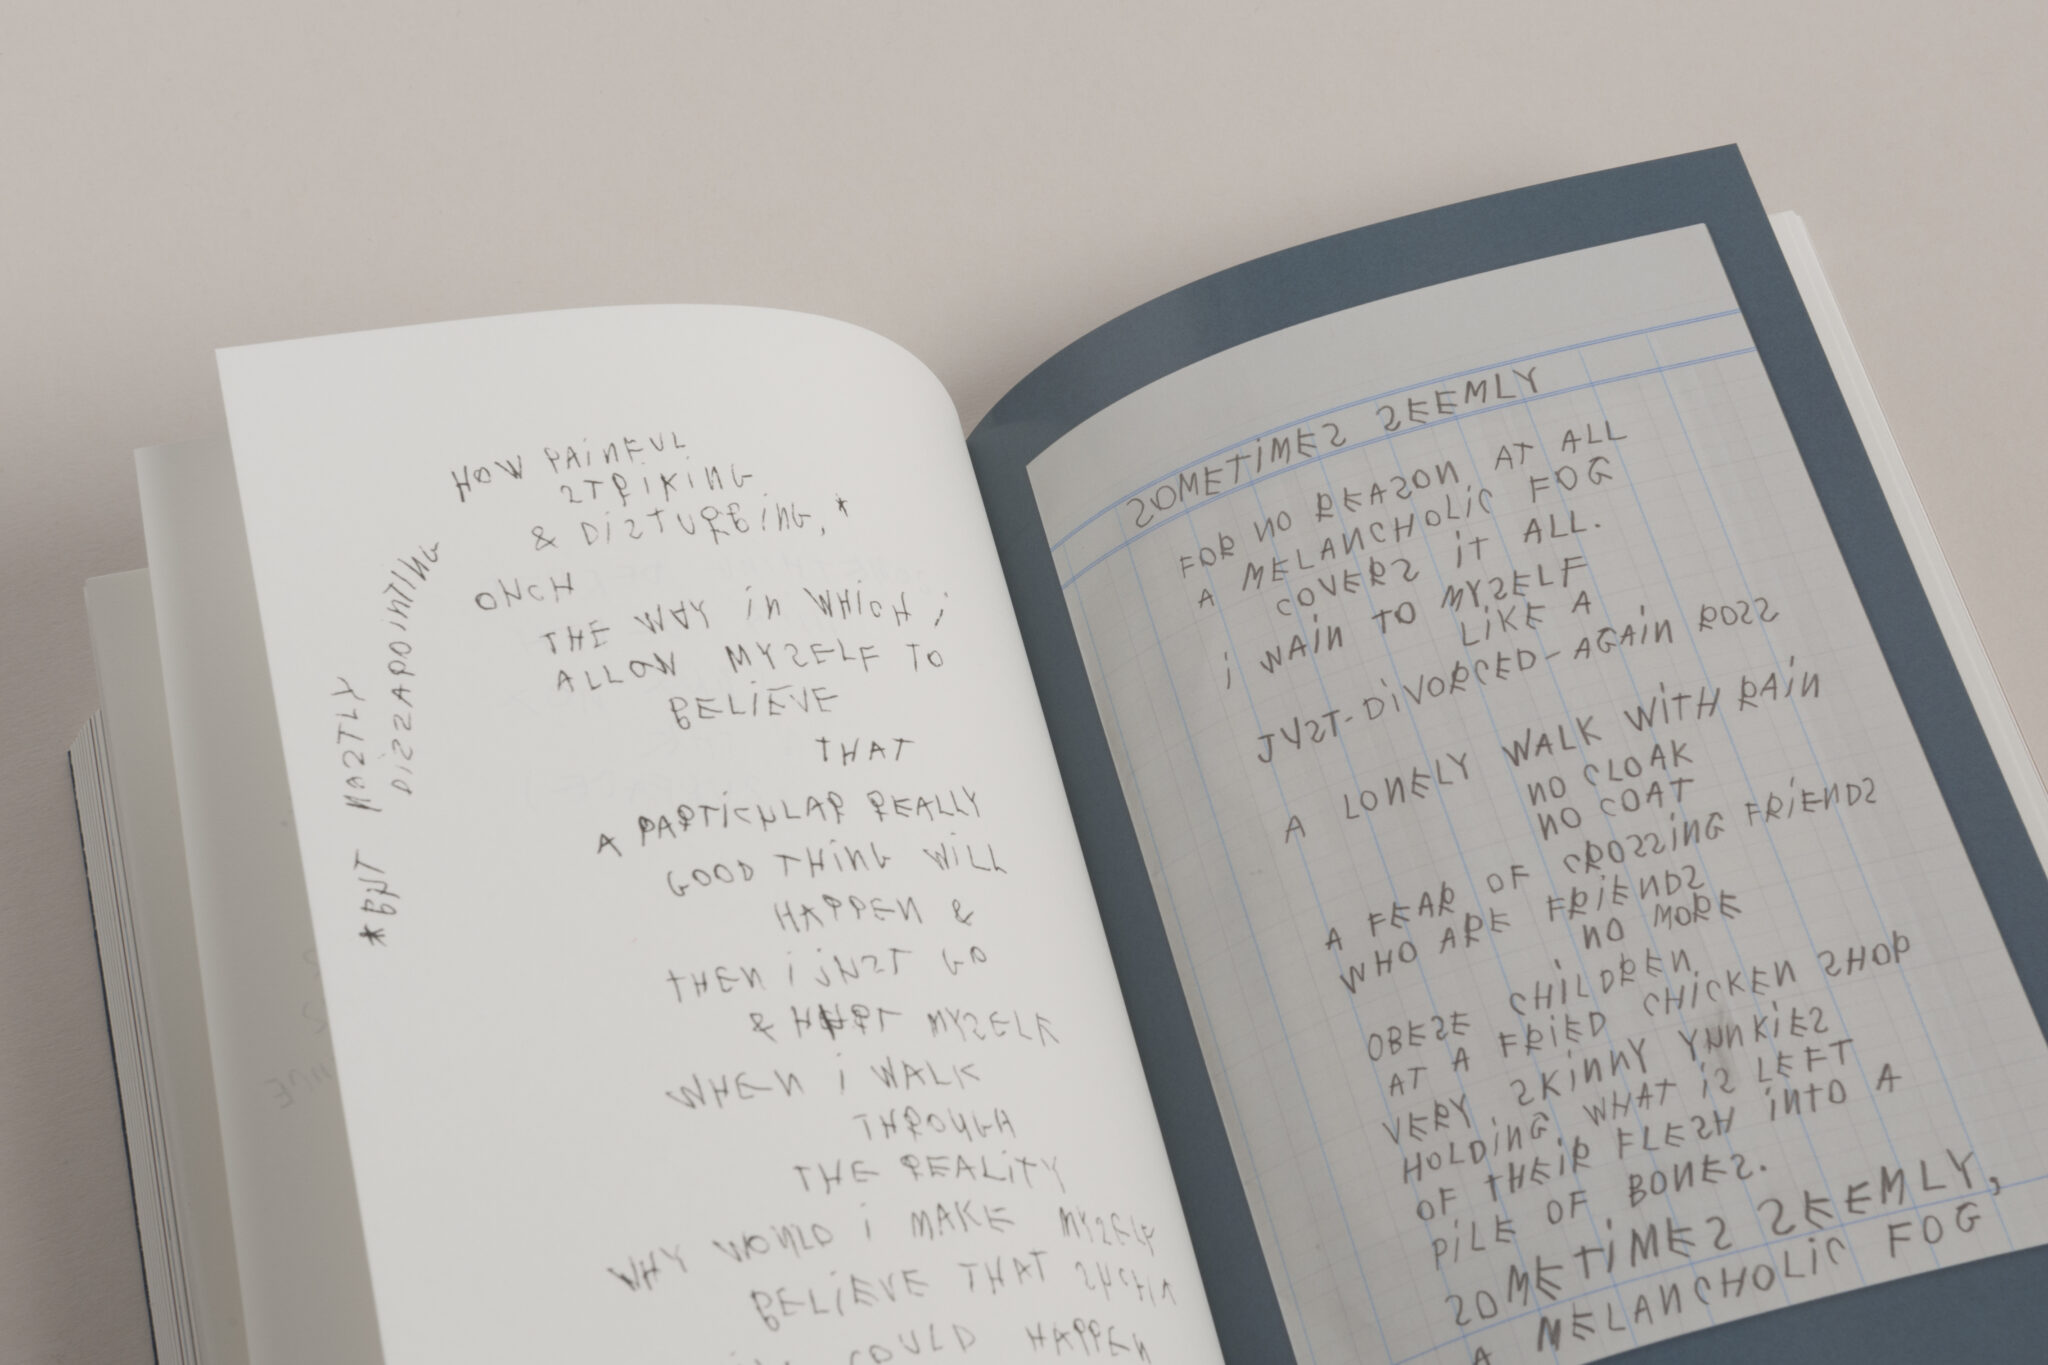 HOW PAINFUL
STRIKING
& DISTURBING,*
ONCH
THE WAY IN WHICH I
ALLOW MYSELF TO
BELIEVE
THAT
A PARTICULAR REALLY
GOOD THING WILL
HAPPEN &
THEN I JUST GO
& HURT MYSELF
WHEN I WALK
THROUGH
THE REALITY
WHY WOULD I MAKE MYSELF
BELIEVE THAT SUCH A
COULD HAPPEN
*BUT MOSTLY
DISSAPOINTING
SOMETIMES SEEMLY
FOR NO REASON AT ALL
A MELANCHOLIC FOG
COVERS IT ALL.
I WAIN TO MYSELF
LIKE A
JUST-DIVORCED-AGAIN ROSS
A LONELY WALK WITH RAIN
NO CLOAK
NO COAT
A FEAR OF CROSSING FRIENDS
WHO ARE FRIENDS
NO MORE
OBESE CHILDREN
AT A FRIED CHICKEN SHOP
VERY SKINNY YUNKIES
HOLDING WHAT IS LEFT
OF THEIR FLESH INTO A
PILE OF BONES.
SOMETIMES SEEMLY,
A MELANCHOLIC FOG